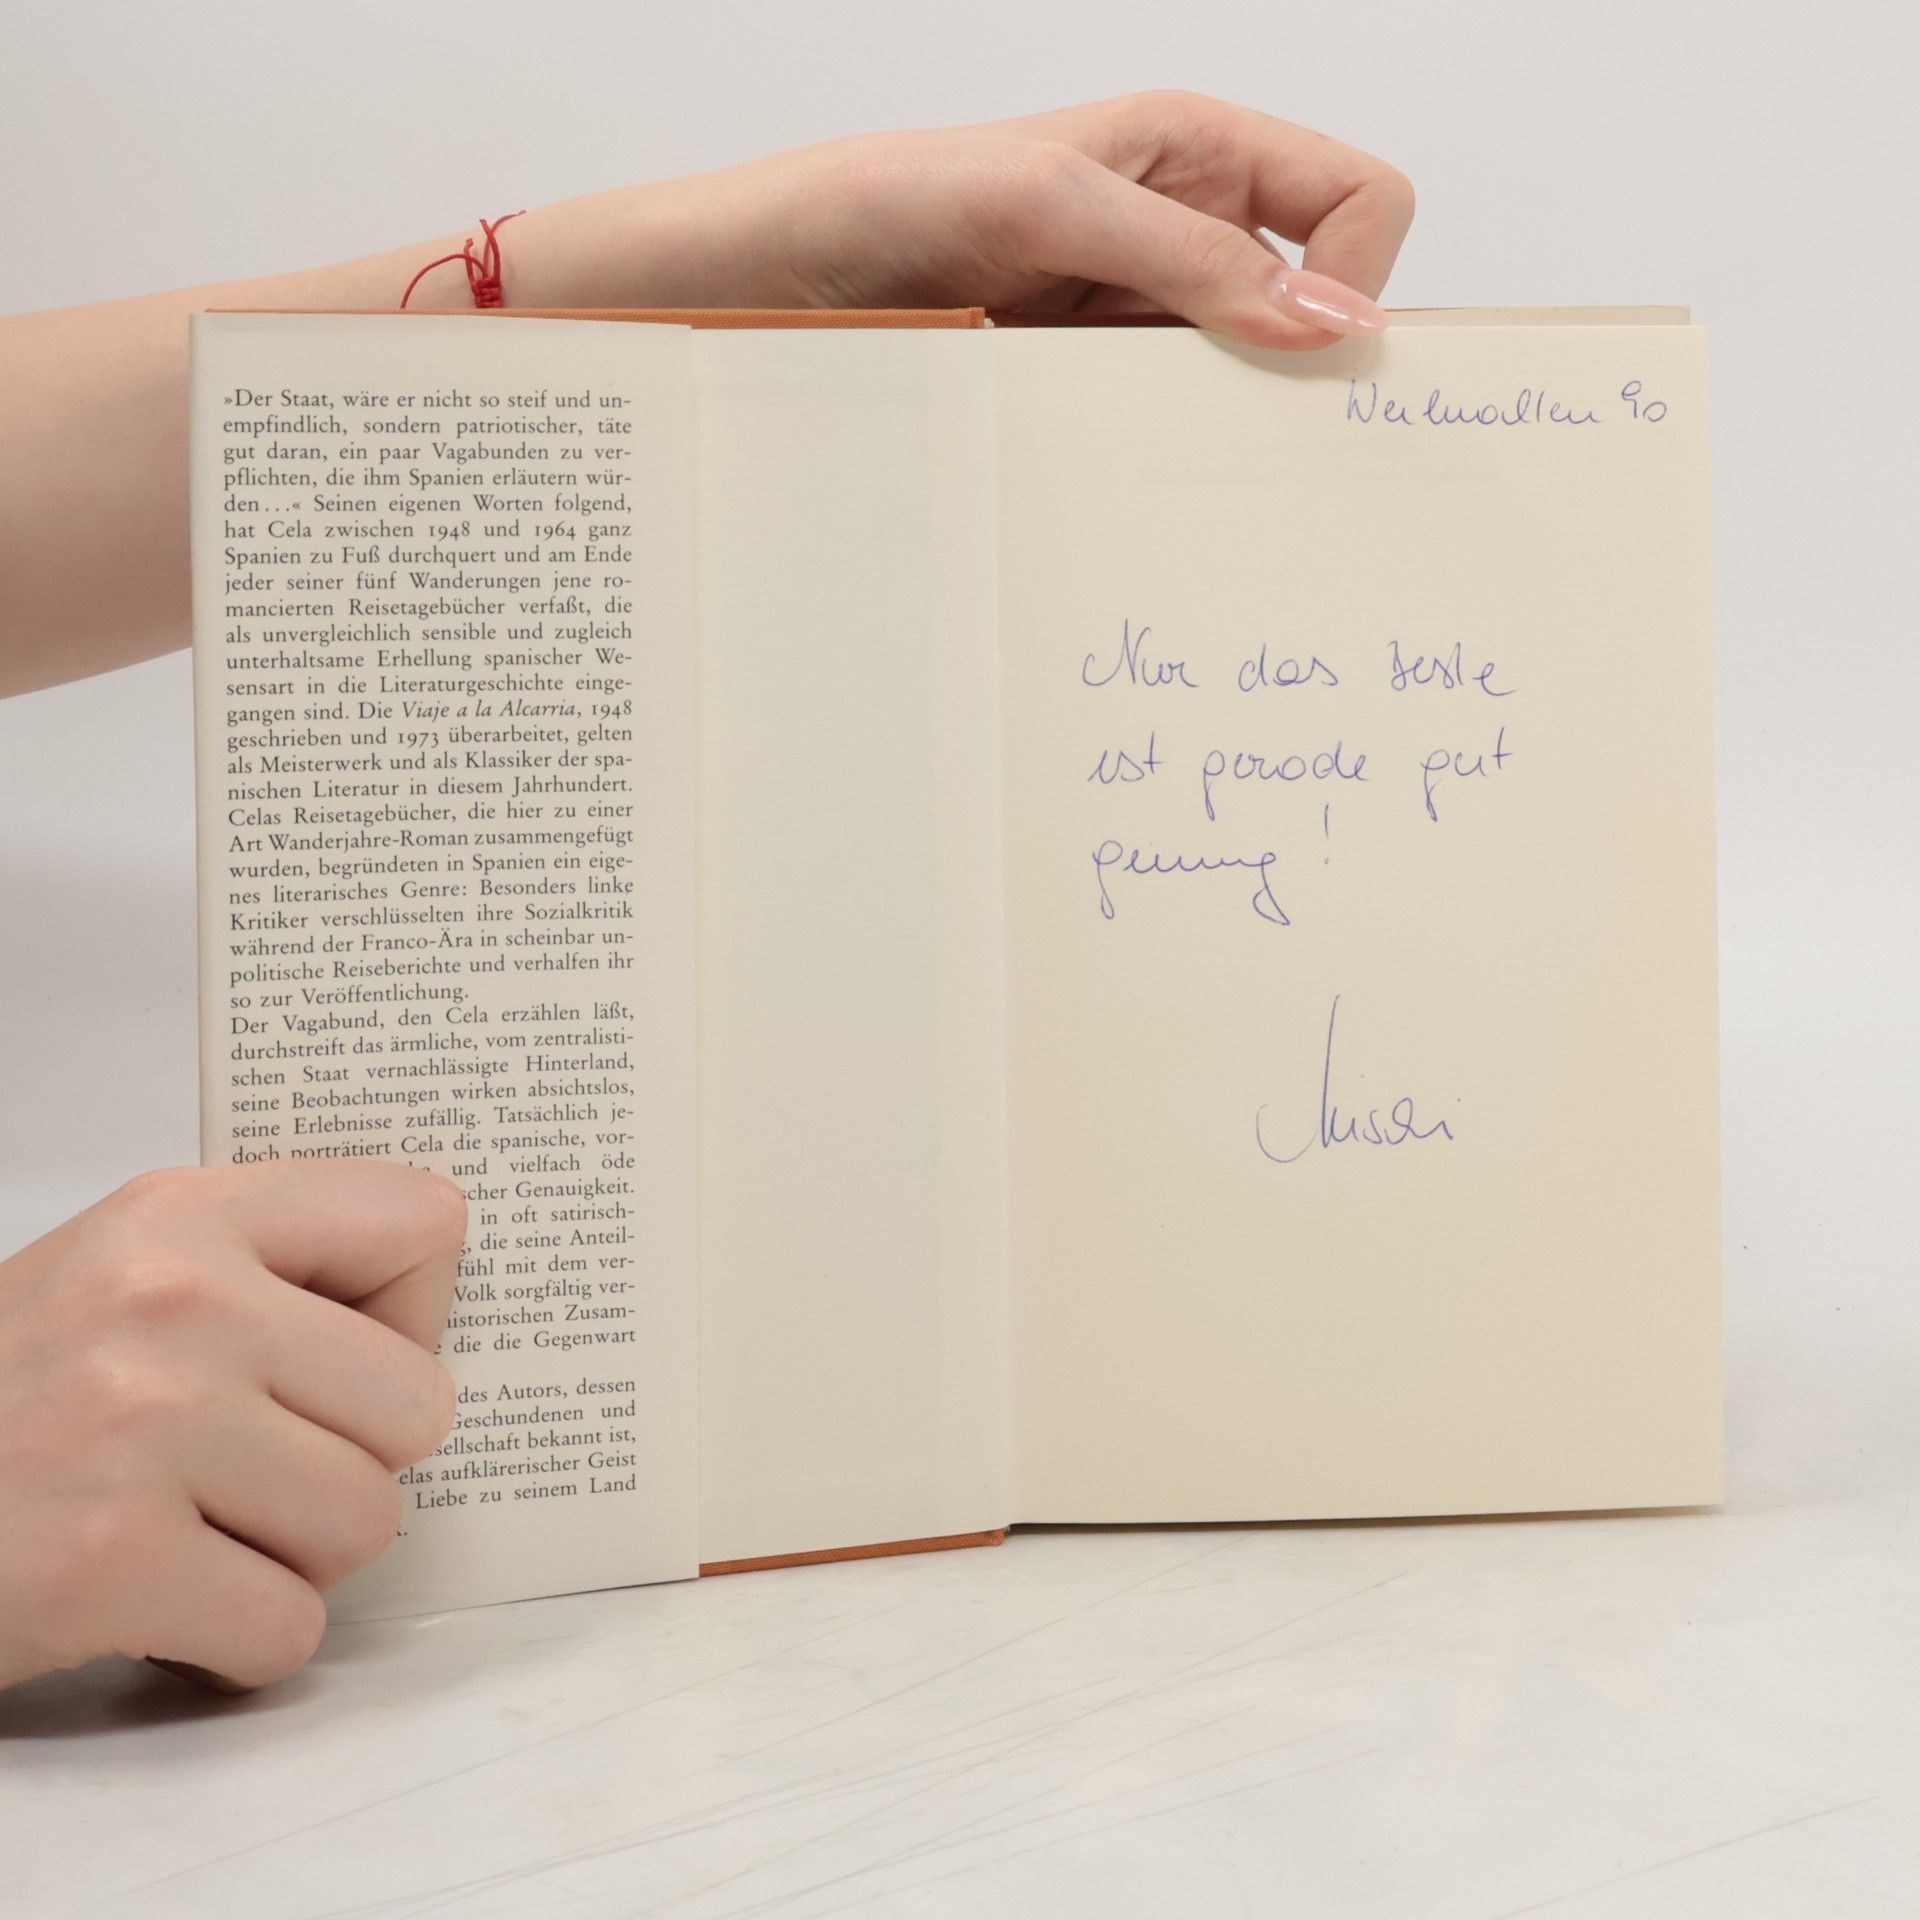 »Der Staat, wäre er nicht so steif und un-
empfindlich, sondern patriotischer, täte
gut daran, ein paar Vagabunden zu ver-
pflichten, die ihm Spanien erläutern wür-
den...« Seinen eigenen Worten folgend,
hat Cela zwischen 1948 und 1964 ganz
Spanien zu Fuß durchquert und am Ende
jeder seiner fünf Wanderungen jene ro-
mancierten Reisetagebücher verfaßt, die
als unvergleichlich sensible und zugleich
unterhaltsame Erhellung spanischer We-
sensart in die Literaturgeschichte einge-
gangen sind. Die Viaje a la Alcarria, 1948
geschrieben und 1973 überarbeitet, gelten
als Meisterwerk und als Klassiker der spa-
nischen Literatur in diesem Jahrhundert.
Celas Reisetagebücher, die hier zu einer
Art Wanderjahre-Roman zusammengefügt
wurden, begründeten in Spanien ein eige-
nes literarisches Genre: Besonders linke
Kritiker verschlüsselten ihre Sozialkritik
während der Franco-Ära in scheinbar un-
politische Reiseberichte und verhalfen ihr
so zur Veröffentlichung.
Der Vagabund, den Cela erzählen läßt,
durchstreift das ärmliche, vom zentralisti-
schen Staat vernachlässigte Hinterland,
seine Beobachtungen wirken absichtslos,
seine Erlebnisse zufällig. Tatsächlich je-
doch porträtiert Cela die spanische, vor-
und vielfach öde
scher Genauigkeit.
in oft satirisch-
, die seine Anteil-
fühl mit dem ver-
Volk sorgfältig ver-
historischen Zusam-
die die Gegenwart
des Autors, dessen
Geschundenen und
sellschaft bekannt ist,
elas aufklärerischer Geist
Liebe zu seinem Land
Weihnachten 90
Nur das Beste
ist gerade gut
genug!